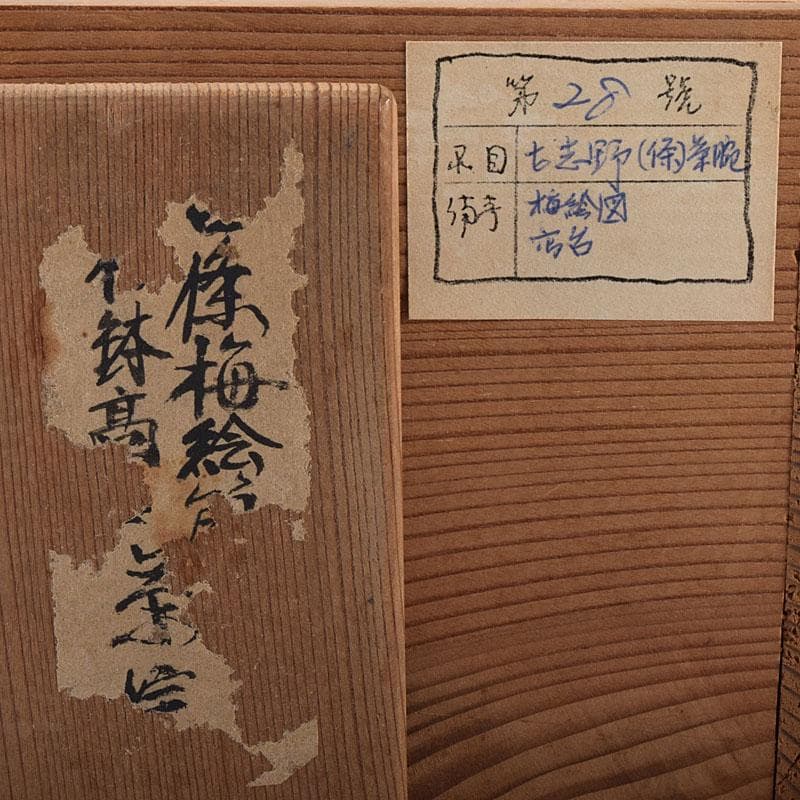 第28號
品目 古志野(條)茶碗
備考 梅絵図
高台
條梅絵
鉢高
茶